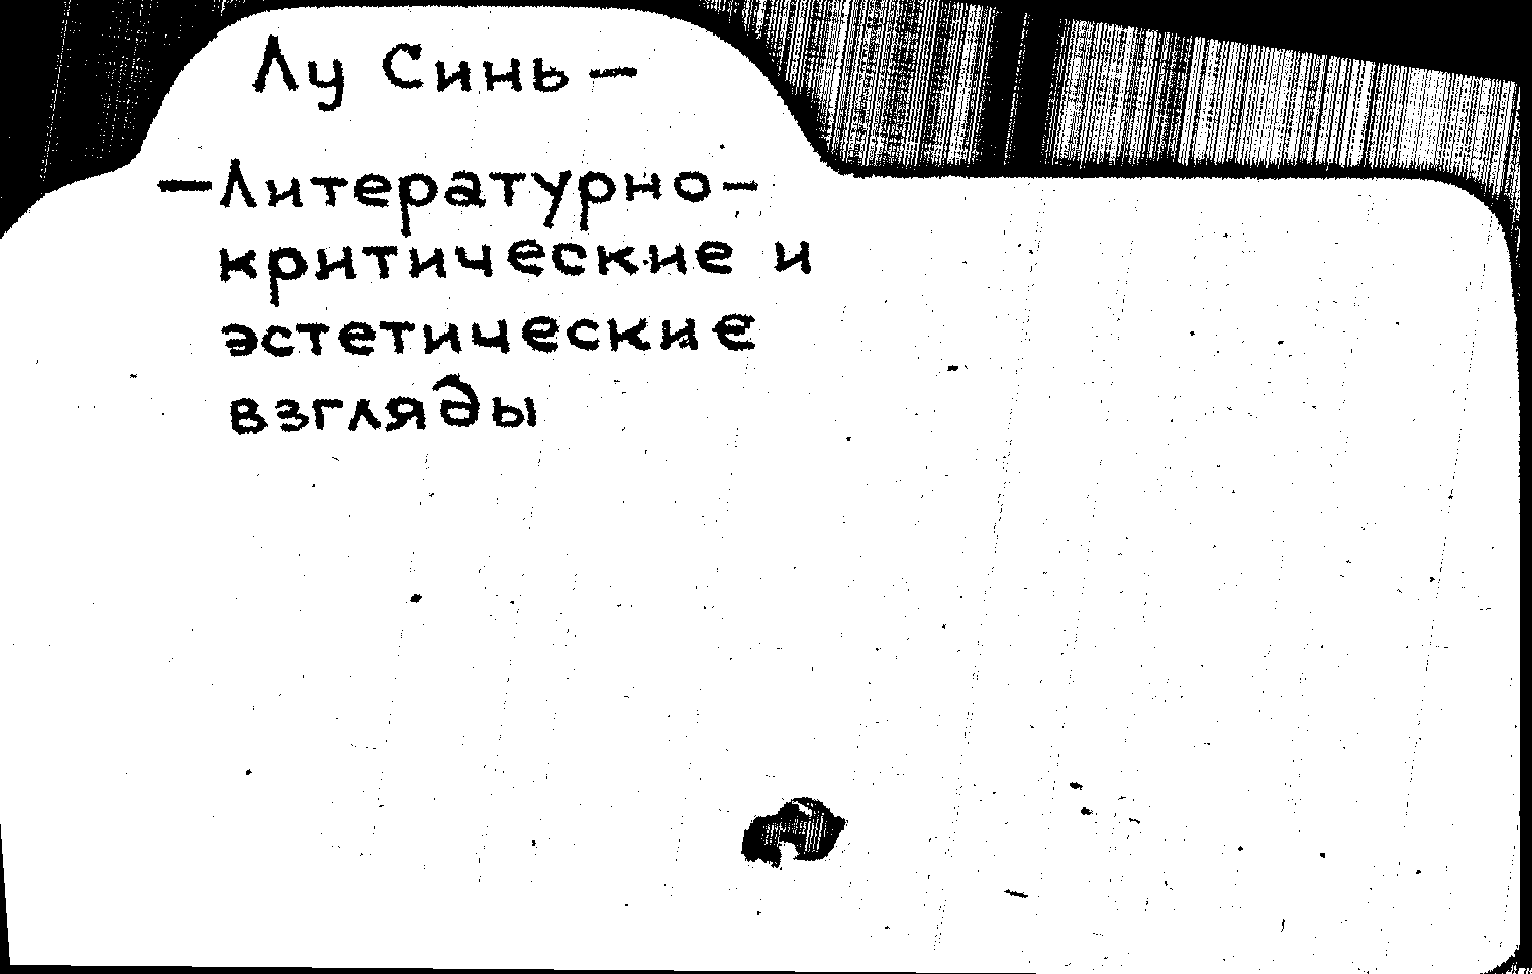 Лу Синь —
— Литературно-
критические и
эстетические
взгляды